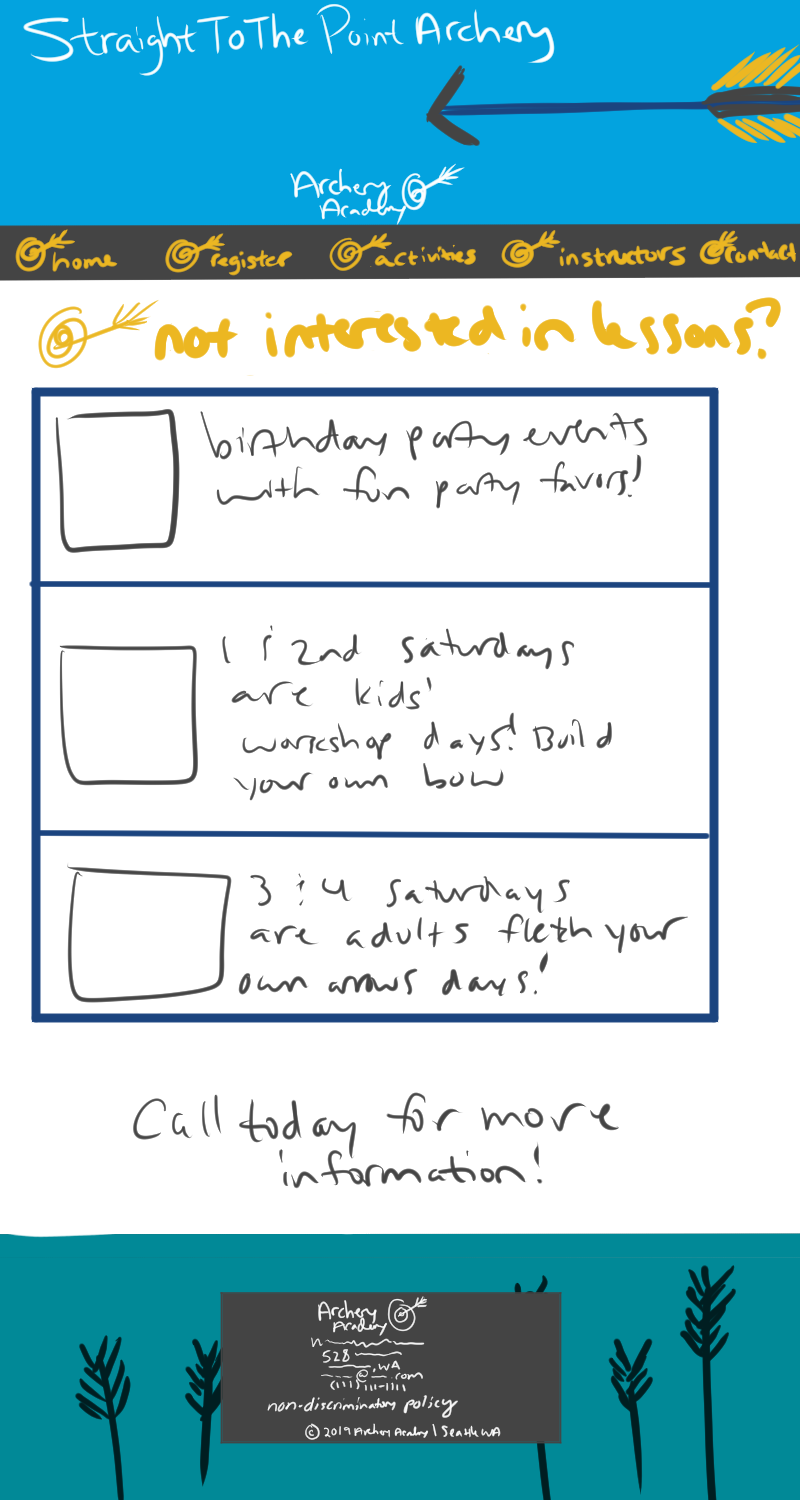 StraightToThe Point Archery
Archery
Academy
home register activities instructors contact
not interested in lessons?
birthday party events
with fun party favors!
1 & 2nd saturdays
are kids'
workshop days! Build
your own bow
3 & 4 saturdays
are adults fletch your
own arrows days!
Call today for more
information!
Archery
Academy
528
, WA
@ .com
(111) 111-1111
non-discriminatory policy
© 2019 Archery Academy | Seattle WA